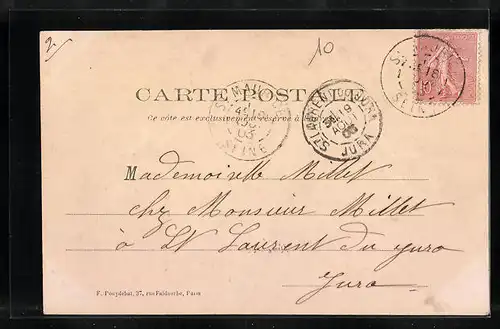 2.
10
CARTE POSTALE
Ce côté est exclusivement réservé à
ST LAURENT DU JURA
19
AOUT
03
JURA
03
SEINE
Mademoiselle Millet
chez Monsieur Millet
à St Laurent du Jura
Jura
F. Pouydebat, 37, rue Faidherbe, Paris